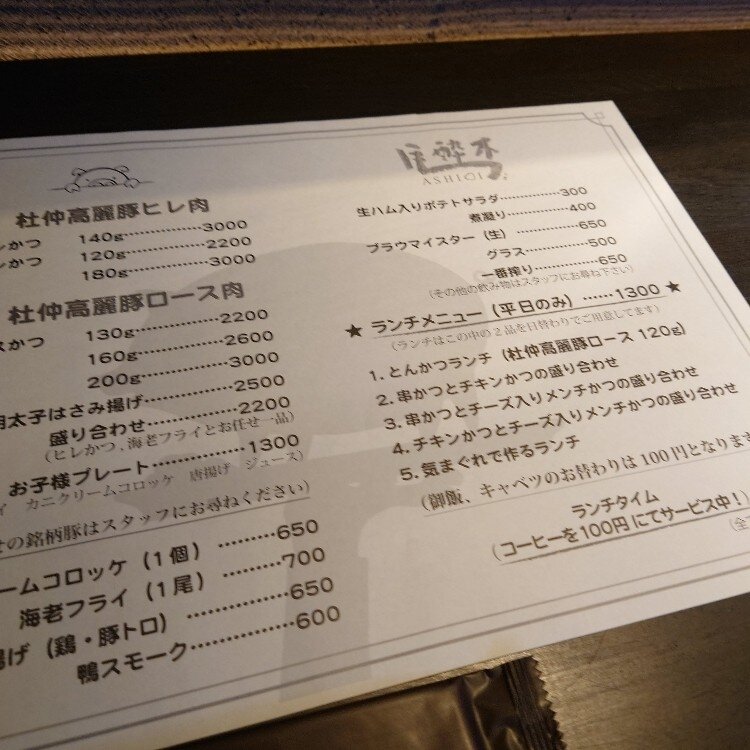 杜仲高麗豚ヒレ肉
レかつ 140g……………3000
レかつ 120g……………2200
180g……………3000
杜仲高麗豚ロース肉
スかつ 130g……………2200
160g……………2600
200g……………3000
明太子はさみ揚げ……………2500
盛り合わせ……………2200
(ヒレかつ、海老フライとお任せ一品)
お子様プレート……………1300
カニクリームコロッケ 唐揚げ ジュース)
せの銘柄豚はスタッフにお尋ねください)
ームコロッケ (1個) ………650
海老フライ (1尾) ………700
揚げ (鶏・豚トロ) ……………650
鴨スモーク……………600
ASHIOI
生ハム入りポテトサラダ……………300
煮凝り……………400
ブラウマイスター (生) ……………650
グラス……………500
一番搾り……………650
(その他の飲み物はスタッフにお尋ね下さい)
★ ランチメニュー (平日のみ) ……1300 ★
(ランチはこの中の2品を日替わりでご用意してます)
1. とんかつランチ (杜仲高麗豚ロース 120g)
2. 串かつとチキンかつの盛り合わせ
3. 串かつとチーズ入りメンチかつの盛り合わせ
4. チキンかつとチーズ入りメンチかつの盛り合わせ
5. 気まぐれで作るランチ
(御飯、キャベツのお替わりは100円となります
ランチタイム
(コーヒーを100円にてサービス中!)
(全